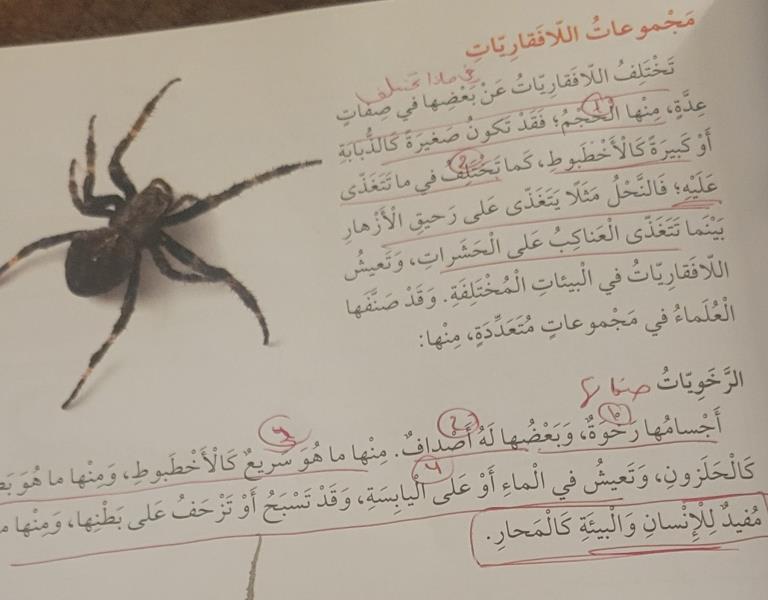 مَجْموعاتُ اللّافَقارِيّاتِ
في ماذا تختلف
تَخْتَلِفُ اللّافَقارِيّاتُ عَنْ بَعْضِها في صِفاتٍ
عِدَّةٍ، مِنْها الْحَجْمُ؛ فَقَدْ تَكونُ صَغيرَةً كَالذُّبابَةِ
أَوْ كَبيرَةً كَالْأَخْطَبوطِ، كَما تَخْتَلِفُ في ما تَتَغَذّى
عَلَيْهِ؛ فَالنَّحْلُ مَثَلًا يَتَغَذّى عَلى رَحيقِ الْأَزْهارِ
بَيْنَما تَتَغَذّى الْعَناكِبُ عَلى الْحَشَراتِ، وَتَعيشُ
اللّافَقارِيّاتُ في الْبيئاتِ الْمُخْتَلِفَةِ. وَقَدْ صَنَّفَها
الْعُلَماءُ في مَجْموعاتٍ مُتَعَدِّدَةٍ، مِنْها:
الرَّخَوِيّاتُ
أَجْسامُها رَخْوَةٌ، وَبَعْضُها لَهُ أَصْدافٌ. مِنْها ما هُوَ سَريعٌ كَالْأَخْطَبوطِ، وَمِنْها ما هُوَ
كَالْحَلَزونِ، وَتَعيشُ في الْماءِ أَوْ عَلى الْيابِسَةِ، وَقَدْ تَسْبَحُ أَوْ تَزْحَفُ عَلى بَطْنِها، وَمِنْها
مُفيدٌ لِلْإِنْسانِ وَالْبيئَةِ كَالْمَحارِ.